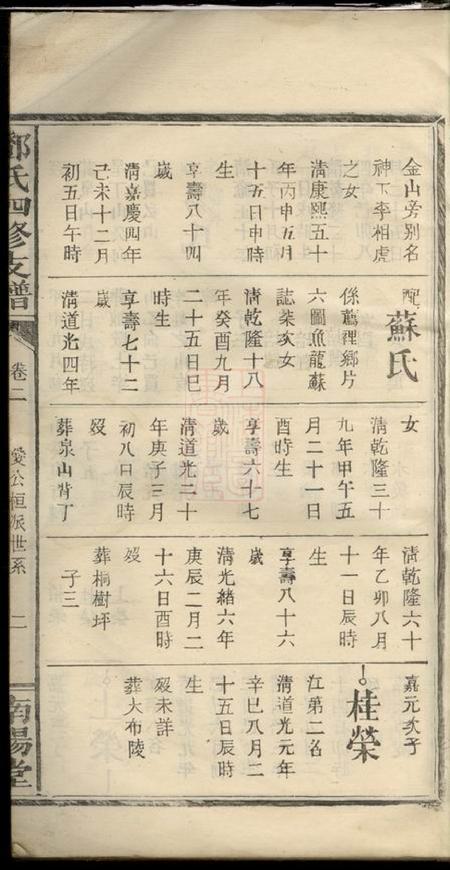 鄧氏四修支譜
卷二
愛公恒派世系
二
南陽堂
金山旁别名
神下李相虎
之女
清康熙五十
年丙申五月
十五日申時
生
享壽八十四
歲
清嘉慶四年
己未十二月
初五日午時
配蘇氏
係薦裡鄉片
六圖魚龍蘇
誌柴次女
清乾隆十八
年癸酉九月
二十五日巳
時生
享壽七十二
歲
清道光四年
女
清乾隆三十
九年甲午五
月二十一日
酉時生
享壽六十七
歲
清道光二十
年庚子三月
初八日辰時
歿
葬泉山背丁
清乾隆六十
年乙卯八月
十一日辰時
生
享壽八十六
歲
清光緒六年
庚辰二月二
十六日酉時
歿
葬桐樹坪
子三
嘉元次子
桂榮
江第二名
清道光元年
辛巳八月二
十五日辰時
生
歿未詳
葬大布陵